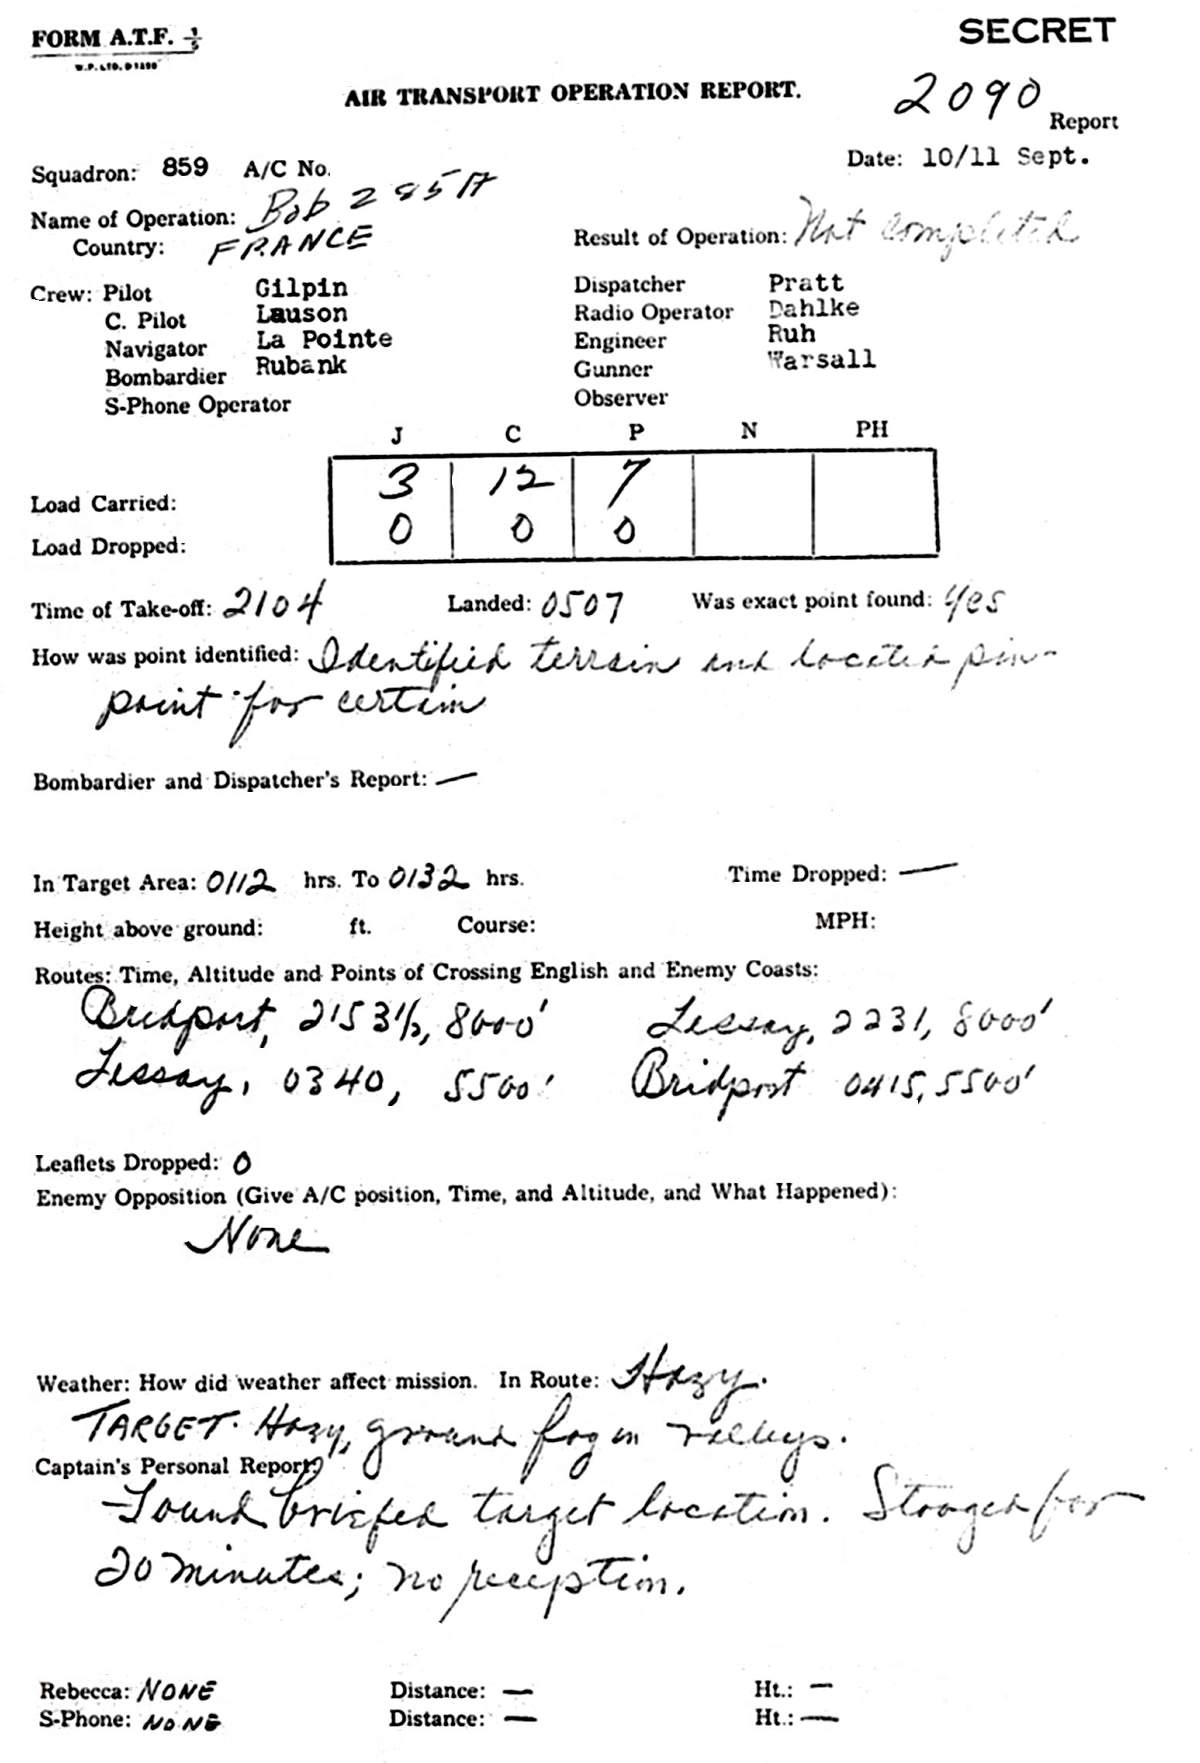 FORM A.T.F. 1/5
SECRET
W.P. LTD. D1290
AIR TRANSPORT OPERATION REPORT.
2090 Report
Squadron: 859 A/C No.
Date: 10/11 Sept.
Name of Operation: Bob 285A
Country: FRANCE
Result of Operation: Not completed
Crew: Pilot Gilpin Dispatcher Pratt
C. Pilot Lauson Radio Operator Dahlke
Navigator La Pointe Engineer Ruh
Bombardier Rubank Gunner Warsall
S-Phone Operator Observer
J C P N PH
Load Carried: 3 12 7
Load Dropped: 0 0 0
Time of Take-off: 2104 Landed: 0507 Was exact point found: Yes
How was point identified: Identified terrain and located pin-
point for certain
Bombardier and Dispatcher's Report: —
In Target Area: 0112 hrs. To 0132 hrs. Time Dropped: —
Height above ground: ft. Course: MPH:
Routes: Time, Altitude and Points of Crossing English and Enemy Coasts:
Bridport, 2153½, 8000' Lessay, 2231, 8000'
Lessay, 0340, 5500' Bridport 0415, 5500'
Leaflets Dropped: 0
Enemy Opposition (Give A/C position, Time, and Altitude, and What Happened):
None
Weather: How did weather affect mission. In Route: Hazy.
TARGET. Hazy, ground fog in valleys.
Captain's Personal Report:
Found briefed target location. Stooged for
20 minutes; no reception.
Rebecca: NONE Distance: — Ht.: —
S-Phone: NONE Distance: — Ht.: —